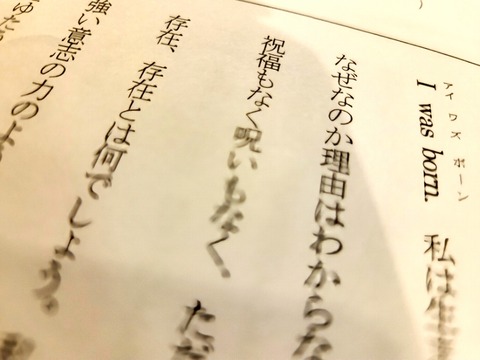 アイ ワズ ボーン
I was born. 私は生
なぜなのか理由はわからな
祝福もなく呪いもなく、ただ
存在、存在とは何でしょう。
強い意志の力のよ
ゆた